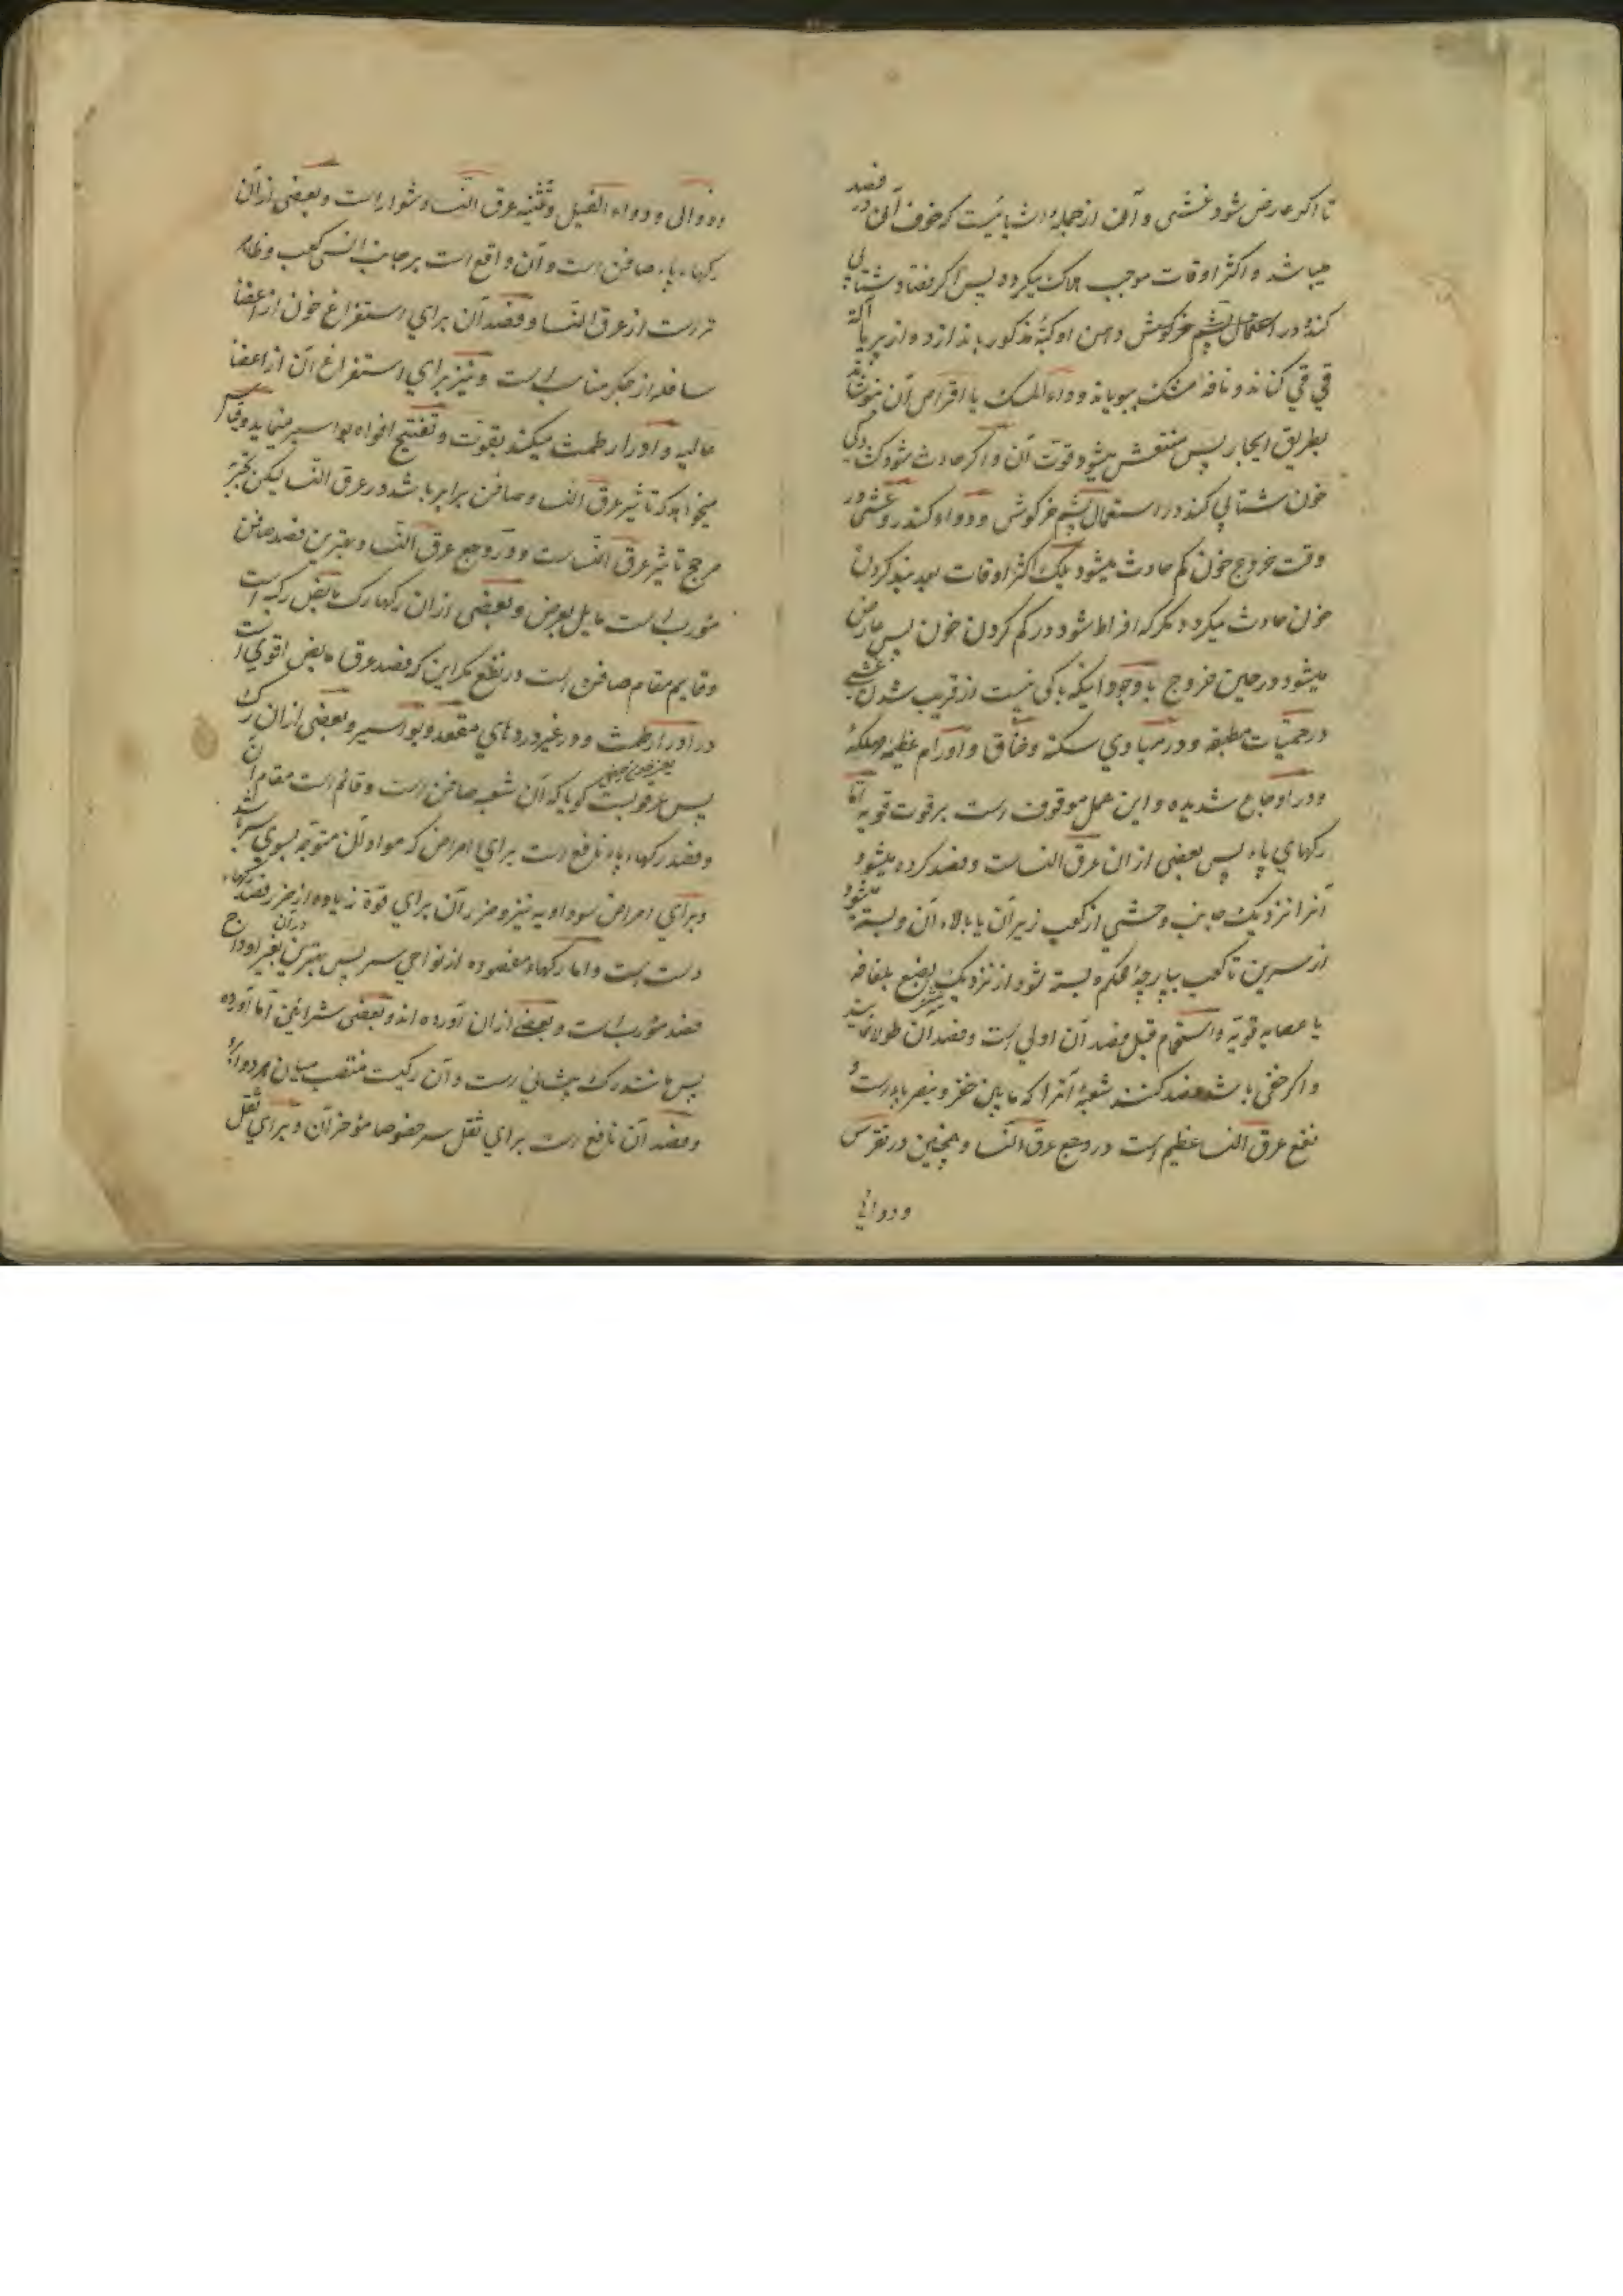 تا اگر عارض شود غشی و آن از جمله اشیائیست که خوف آن در فصد
میباشد و اکثر اوقات موجب هلاک میگردد پس اگر شتابی
کند در استعمال پشم خرگوش دهن او کبهٔ مذکور باندازد و از پر یا آلة
قی قی کناند و نافه مشک ببویاند و دواء المسک یا اقراص آن بنوشاند
بطریق ایجار پس منتعش میشود قوت آن و اگر حادث شود
خون شتابی کند در استعمال پشم خرگوش و دواء کندر و غشی در
وقت خروج خون کم حادث میشود بلکه اکثر اوقات بعد بند کردن
خون حادث میگردد مگر که افراط شود در کم کردن خون پس عارض
میشود در حین خروج باوجود اینکه باکی نیست از قریب شدن بغشی
در حمیات مطبقه و در مبادی سکته و خناق و اورام عظیمه مهلکه
و در اوجاع شدیده و این عمل موقوف است بر قوت قویه اما
رگهای پاء پس بعضی ازان عرق النساست و فصد کرده میشود
آنرا نزدیک جانب وحشی از کعب زیر آن یا بالاء آن و بسته میشود
از سرین تا کعب بپارچهٔ محکم بسته شود از نزدیک بلفافه
یا عصابه قویه و استحمام قبل فصد آن اولی است و فصد آن
و اگر خفی باشد فصد کنند شعبهٔ آنرا که مابین خنصر و بنصر پا است و
نفع عرق النسا عظیم است در وجع عرق النسا و همچنین در نقرس
و دوالی
و دوالی و دواء الفیل و تثنیه عرق النسا دشوار است و بعضی ازان
رگهاء پاء صافن است و آن واقع است بر جانب انسی کعب و ظاهر
تر است از عرق النسا و فصد آن برای استفراغ خون از اعضا
سافله از جگر مناسب است و نیز برای استفراغ آن از اعضا
عالیه و ادرار طمث میکند بقوت و تفتیح افواه بواسیر مینماید و قیاس
میخواهد که تاثیر عرق النسا و صافن برابر باشد در عرق النسا لیکن تجربه
مرجح تاثیر عرق النساست در وجع عرق النسا و بهترین فصد صافن
مورب است مایل بعرض و بعضی ازان رگها رگ مابض رکبه است
و قایم مقام صافن است در نفع مگر این که فصد عرق مابض اقوی است
در ادرار طمث و در غیر دردهای مقعد و بواسیر و بعضی ازان رگ
پس عرقوبست گویا که آن شعبه صافن است و قائم است مقام آن
و فصد رگهاء پاء نافع است برای امراض که مواد آن متوجه بسوی سر باشد
و برای امراض سوداویه نیز و ضرر آن برای قوة زیاده از ضرر فصد رگهاء
دست است و اما رگهاء مفصوده از نواحی سر پس بهترین در آن بغیر اوداج
فصد مورب است و بعضی ازان آورده اند و بعضی شرایین اما آورده
پس مانند رگ پیشانی است و آن رگیست منتصب میان هر دو ابرو
و فصد آن نافع است برای ثقل سر خصوصا مؤخر آن و برای ثقل